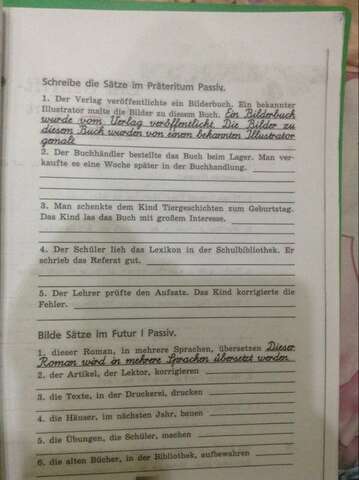 Schreibe die Sätze im Präteritum Passiv.
1. Der Verlag veröffentlichte ein Bilderbuch. Ein bekannter
Illustrator malte die Bilder zu diesem Buch. Ein Bilderbuch
wurde vom Verlag veröffentlicht. Die Bilder zu
diesem Buch wurden von einem bekannten Illustrator
gemalt.
2. Der Buchhändler bestellte das Buch beim Lager. Man ver-
kaufte es eine Woche später in der Buchhandlung.
3. Man schenkte dem Kind Tiergeschichten zum Geburtstag.
Das Kind las das Buch mit großem Interesse.
4. Der Schüler lieh das Lexikon in der Schulbibliothek. Er
schrieb das Referat gut.
5. Der Lehrer prüfte den Aufsatz. Das Kind korrigierte die
Fehler.
Bilde Sätze im Futur I Passiv.
1. dieser Roman, in mehrere Sprachen, übersetzen Dieser
Roman wird in mehrere Sprachen übersetzt werden.
2. der Artikel, der Lektor, korrigieren
3. die Texte, in der Druckerei, drucken
4. die Häuser, im nächsten Jahr, bauen
5. die Übungen, die Schüler, machen
6. die alten Bücher, in der Bibliothek, aufbewahren